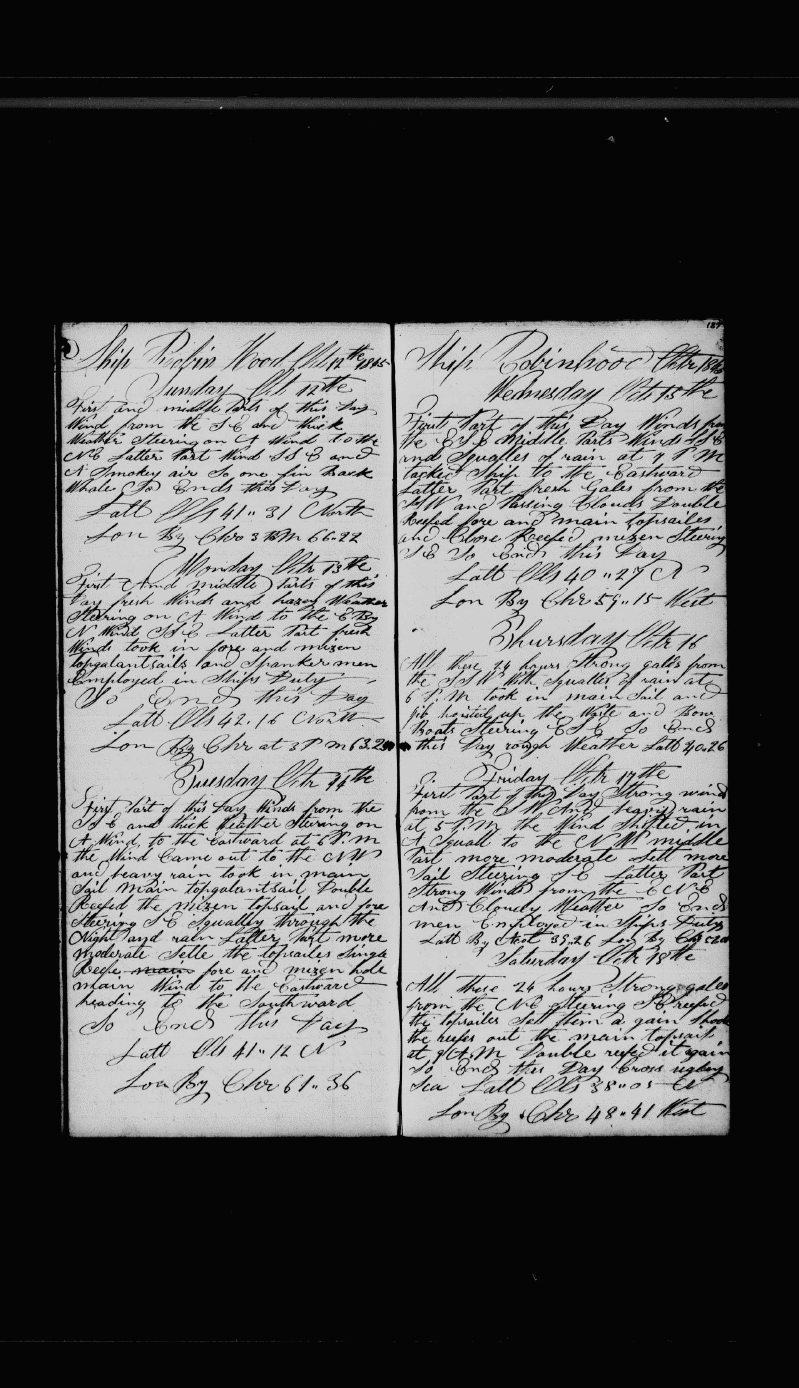 Ship Robin Hood Oct 12th 1845
Sunday Oct 12th
First and middle Parts of this Day
Wind from the S E and thick
Weather Steering on A Wind to the
N E Latter Part Wind S S E and
A Smokey air So one fin Back
Whale So Ends this Day
Latt Obs 41 " 31 North
Lon By Chro 3 PM 66-22
Monday Octr 13th
First And middle Parts of this
Day fresh Winds and hazey Weather
Steering on A Wind to the E By
N Wind S S E Latter Part fresh
Winds took in fore and mizen
topgalantsails and Spanker men
Employed in Ships Duty
So Ends this Day
Latt Obs 42.16 North
Lon By Chr at 3 P m 63.2
Tuesday Octr 14th
First Part of this Day Winds from the
S S E and thick Weather Steering on
A Wind, to the Eastward at 6 P.m
the Wind Came out to the N W
and heavy rain took in main
Sail main topgalantsail Double
Reefed the mizen topsail and fore
Steering S E Squalley through the
Night and rain Latter Part more
moderate Sette the topsailes Single
Reefe main fore and mizen hole
main Wind to the Eastward
heading to the Southward
So Ends this Day
Latt Obs 41 " 12 N
Lon By Chr 61 " 36
187
Ship Robinhood Octr 184
Wednesday Oct 15th
First Part of this Day Winds from
the E S E middle Parts Winds S S E
and Squales of rain at 7 P M
tacked Ship to the Eastward
Latter Part fresh Gales from the
S W and Passing Clouds Double
Reefed fore and main topsailes
and Close Reefed mizen Steering
S E So Ends this Day
Latt Obs 40 " 27 N
Lon By Chr 59 " 15 West
Thursday Octr 16
All these 24 hours Strong gales from
the S S W With Squalles of rain at
6 P. M took in main Sail and
jib hoisted up the Waste and Bow
Boats Steering E S E So Ends
this Day rough Weather Latt 40.26
Friday Octr 17th
First Part of this Day Strong wind
from the S W And heavy rain
at 5 P.M the Wind Shifted in
A Squall to the N W middle
Part more moderate Sett more
Sail Steering S E Latter Part
Strong Wind from the E N E
And Cloudy Weather So Ends
men Employed in Ships Duty
Latt By Acct 39.26 Lon By Chr
Saturday Octr 18th
All these 24 hours Strong gales
from the N E Steering S E reefed
the topsailes Sett them a gain Shook
the reefs out the main topsail
at 9 A.M Double reefed it again
So Ends this Day Cross ugley
Sea Latt Obs 38 " 05 N
Lon By Chr 48 " 41 West